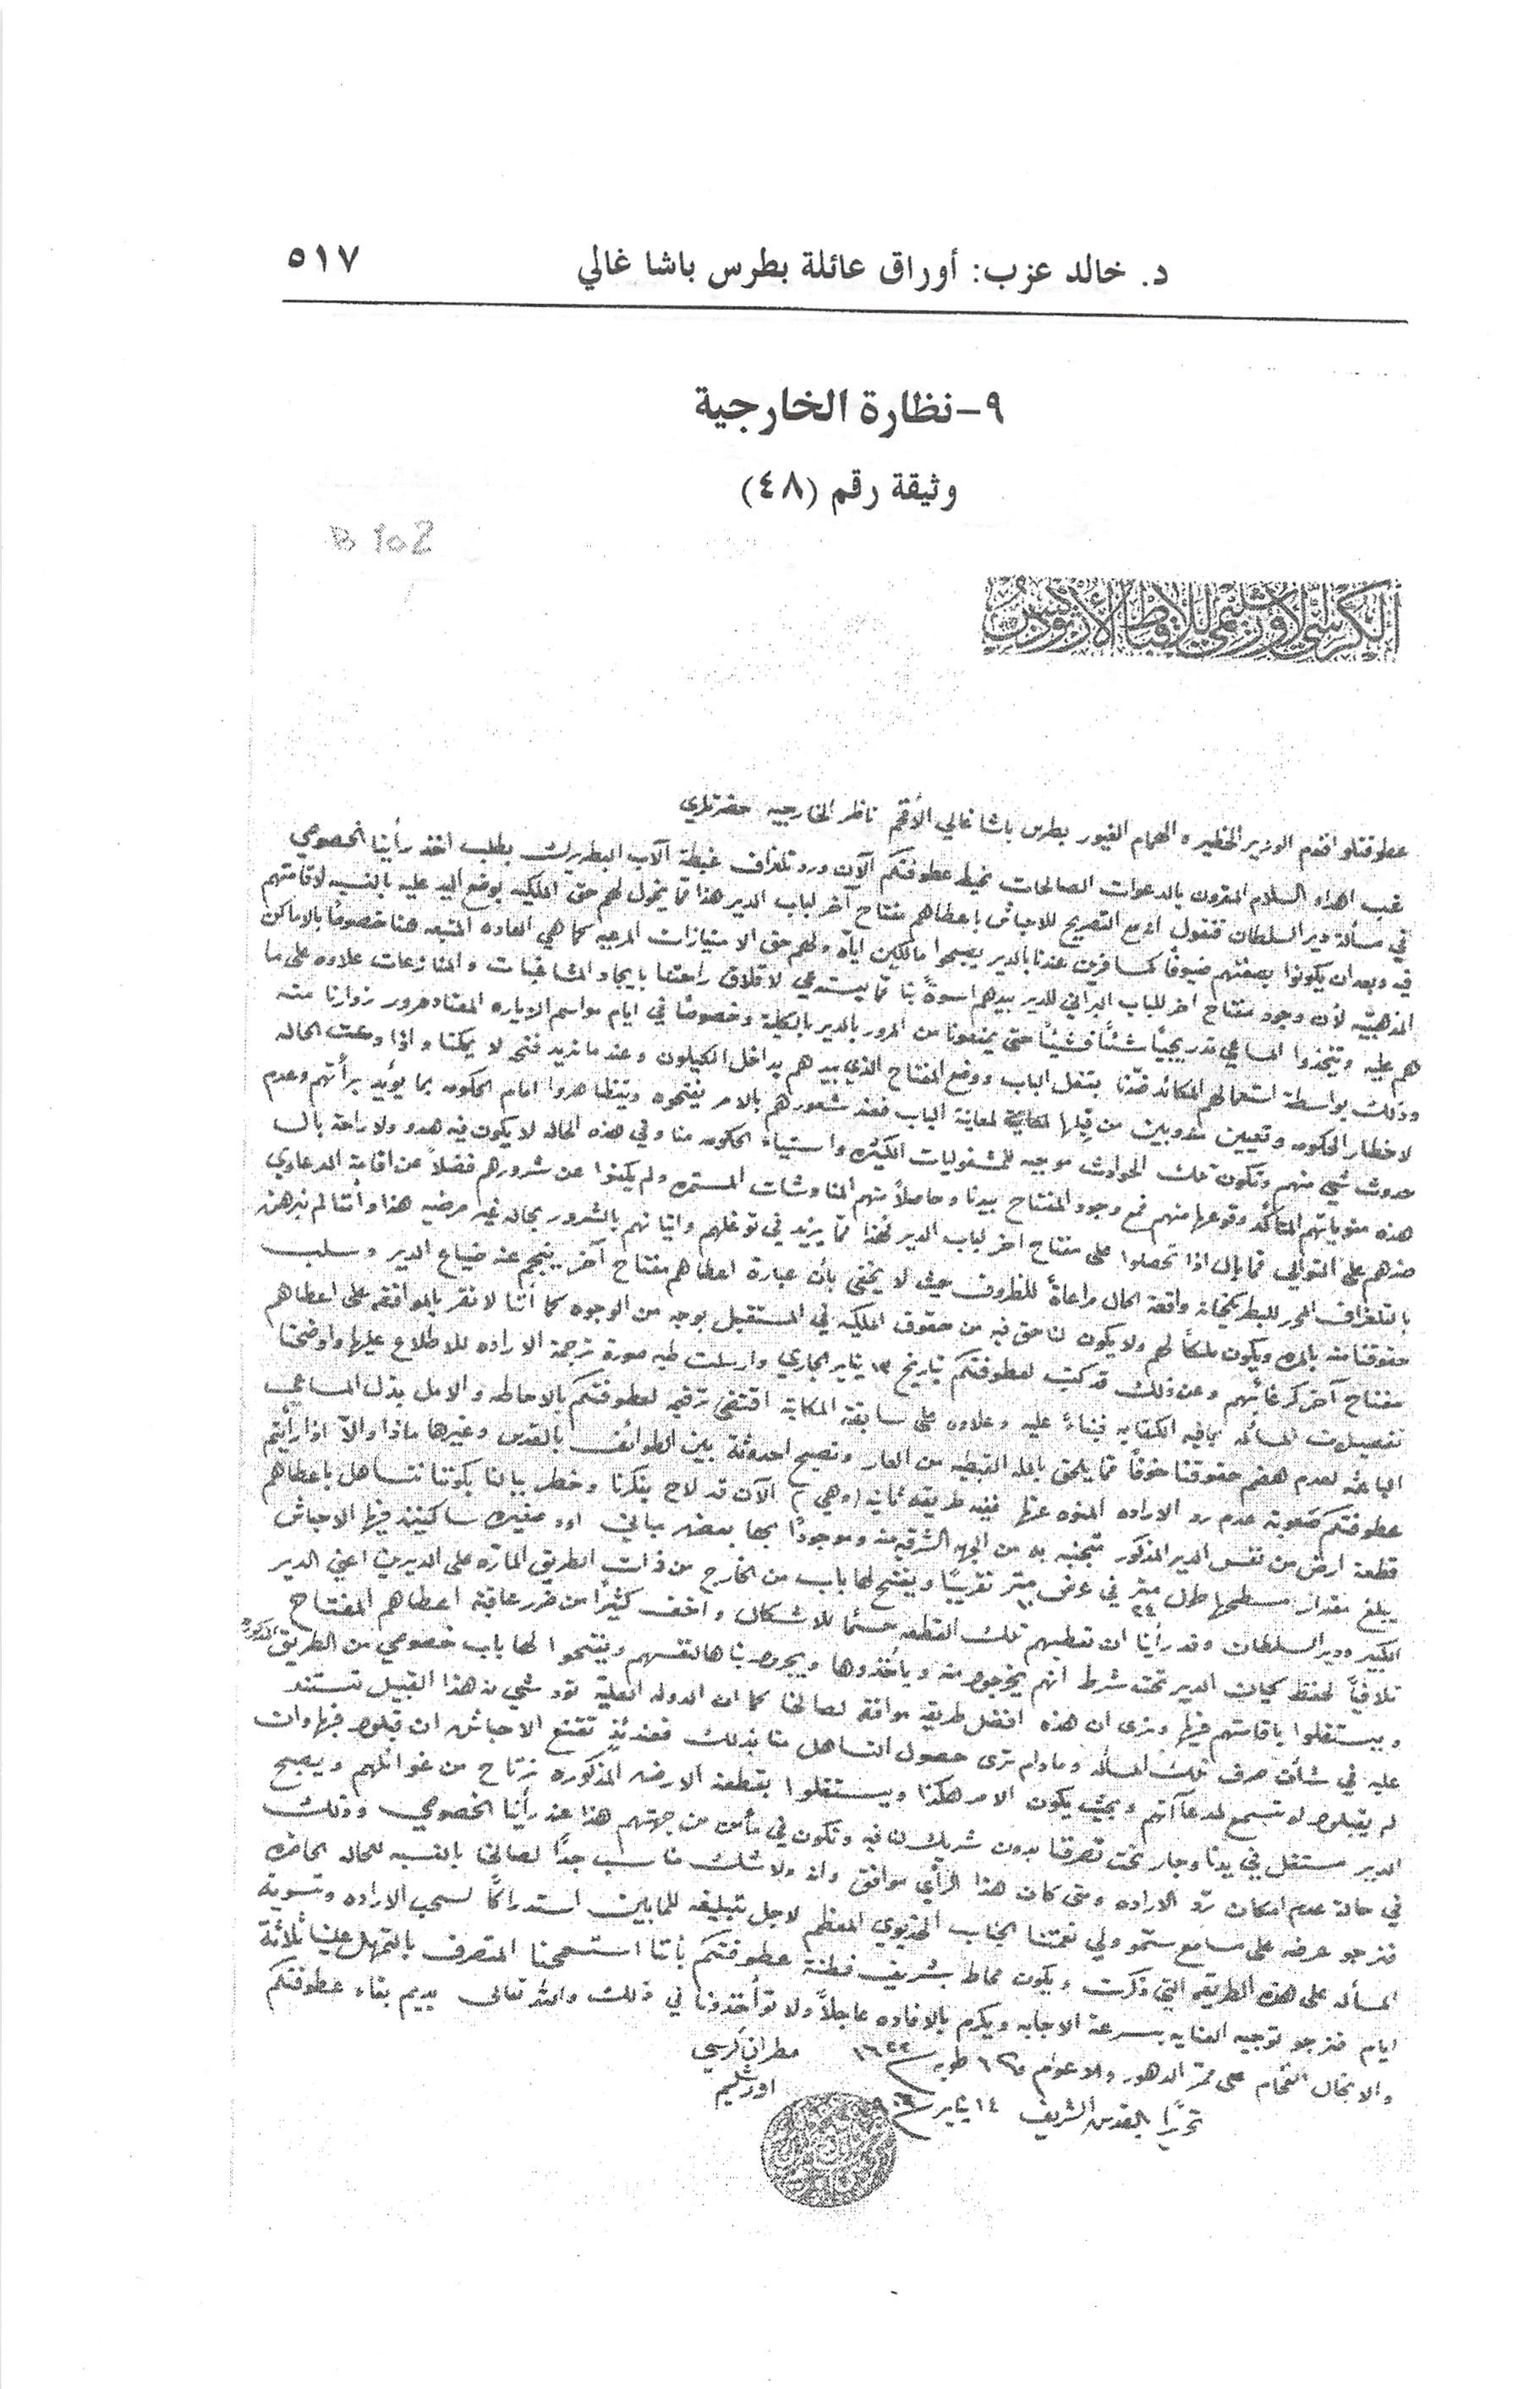 د. خالد عزب: أوراق عائلة بطرس باشا غالي ٥١٧
٩- نظارة الخارجية
وثيقة رقم (٤٨)
B 102
الكرسي الأورشليمي للأقباط الأرثوذكس
عطوفتلو افندم الوزير الخطير الهمام الغيور بطرس باشا غالي الأفخم ناظر الخارجيه حضرتلري
غب اهداء السلام المقرون بالدعوات الصالحات نحيط عطوفتكم الآن ورد تلغراف غبطة الآب البطريرك بطلب اخذ رأينا الخصوصي
في مسألة دير السلطان فنقول ان التصريح للاحباش باعطاهم مفتاح آخر لباب الدير هذا مما يخول لهم حق الملكيه بوضع اليد عليه بالنسبه لاقامتهم
فيه وبعد ان يكونوا بصفتهم ضيوفاً كمسافرين عندنا بالدير يصبحوا مالكين اياه ولهم حق الامتيازات المرعيه كما هي العاده المتبعه هنا خصوصاً بالاماكن
المذهبيه لأن وجود مفتاح اخر للباب البراني للدير بيدهم اسوةً بنا مما يستدعي لاقلاق راحتنا بايجاد المشاغبات والمنازعات علاوه على ما
هم عليه ويتخذوا المساعي تدريجياً شئاً فشيئاً حتى يمنعونا من المرور بالدير بالكلية وخصوصاً في ايام مواسم الزياره المعتاد مرور زوارنا منه
وذلك بواسطة استعمالهم المكائد ضدنا بقفل الباب ووضع المفتاح الذي بيدهم بداخل الكيلون وعندما نريد فتحه لا يمكنا واذا دعت الحاله
لاخطار الحكومه وتعيين مندوبين من قِبلها لمعاينة الباب فعند شعورهم بالامر يفتحوه ويتظاهروا امام الحكومه بما يؤيد برأتهم وعدم
حدوث شيئ منهم وتكون تلك الحوادث موجبه للمشغوليات الكثيره واستياء الحكومه منا وفي هذه الحاله لا يكون فيه هدو ولا راحة بال
هذه منوياتهم المتأكد وقوعها منهم فمع وجود المفتاح بيدنا وحاصلاً منهم المناوشات المستمره ولم يكفوا عن شرورهم فضلاً عن اقامة الدعاوي
ضدهم على التوالي فما بال اذا تحصلوا على مفتاح اخر لباب الدير فهذا مما يزيد في توغلهم واتيانهم بالشرور بحاله غير مرضيه هذا واننا لم نبرهن
بالتلغراف المحرر للبطريكخانه واقعة الحال مراعاةً للظروف حيث لا يخفى بأن عبارة اعطاهم مفتاح آخر ينجم عنه ضياع الدير وسلب
حقوقنا منه بالمره ويكون ملكاً لهم ولا يكون لنا حق فيه من حقوق الملكيه في المستقبل بوجه من الوجوه كما أننا لا نقر بالموافقه على اعطاهم
مفتاح آخر كرغائبهم وعن ذلك قد كتب لعطوفتكم بتاريخ ١٣ يناير الجاري وارسلت طيه صورة ترجمة الاراده للاطلاع عليها واوضحنا
تفصيلات المسأله بما فيه الكفايه فبناءً عليه وعلاوه على سابقة المكاتبة اقتضى ترقيمه لعطوفتكم بالاحاطه والامل بذل المساعي
لعدم هضم حقوقنا خوفاً مما يلحق بالمله القبطيه من العار وتصبح احدوثة بين الطوائف بالقدس وغيرها ماذا والآ اذا رأيتم
عطوفتكم صعوبة عدم رد الاراده المنوه عنها ففيه طريقه ثانيه (وهي) الآن قد لاح بفكرنا وخطر ببالنا بكوننا نتساهل باعطاهم
قطعة ارض من نفس الدير المذكور من الجهه الشرقيه منه وموجوداً بها بعض مباني اود صغيره ساكنين فيها الاحباش
يبلغ مقدار مسطحها طول متر ٢٤ في عرض متر ١٠ تقريباً ويفتح لها باب من الخارج من ذات الطريق الماره على الديرين اعني الدير
الكبير ودير السلطان وقد رأينا ان نعطيهم تلك القطعه حسماً للاشكال واخف كثيراً من ضرر عاقبة اعطاهم المفتاح
تلافياً لحفظ كيان الدير تحت شرط انهم يخرجوا منه ويأخذوها ويجروا بناها لنفسهم ويفتحوا لها باب خصوصي من الطريق المذكور
ويستقلوا باقامتهم فيها ونرى ان هذه افضل طريقه موافقه لصالحنا كما ان الدوله العليه تود شئ من هذا القبيل تستند
عليه في شأن صرف تلك المسأله وما دام ترى حصول التساهل منا بذلك فعندئذٍ تقنع الاحباش ان قبلوا فيها وان
لم يقبلوا لا تسمع لمدعاآتهم وبحيث يكون الامر هكذا ويستقلوا بقطعة الارض المذكوره نرتاح من غوائلهم ويصبح
الدير مستقل في يدنا وجار تحت تصرفنا بدون شريك لنا فيه ونكون في مأمن من جهتهم هذا عند رأينا الخصوصي وذلك
في حالة عدم امكان رد الاراده ومتى كان هذا الرأي موافق وانه ولا شك مناسب جداً لصالحنا بالنسبه للحاله الحاضره
فنرجو عرضه على مسامع سمو ولي نعمتنا الجناب الخديوي المعظم لاجل تبليغه للمابين استدراكاً لسحب الاراده وتسوية
المسأله على هذه الطريقه التي ذكرت ويكون محاط بشريف فطنة عطوفتكم بأننا استسمحنا المتصرف بالتمهل علينا ثلاثة
ايام فنرجو توجيه العنايه بسرعة الاجابه ويكرم بالافاده عاجلاً ولا تؤاخذونا في ذلك والله تعالى يديم بقاء عطوفتكم
والانجال الفخام على ممر الدهور والاعوام طوبه ١٦٢٢
تحريراً بالقدس الشريف ١٤ يناير ١٩٠٦
مطران كرسي
اورشليم